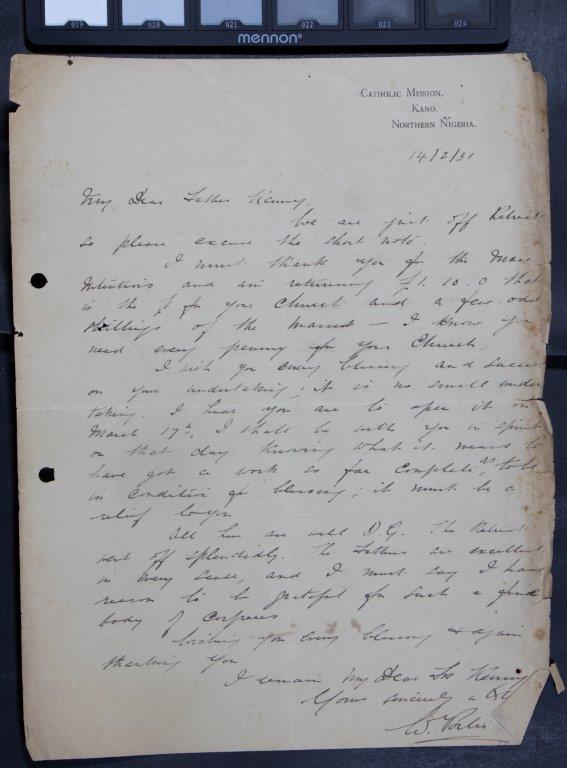 019 020 021 022 023 024
mennon®
CATHOLIC MISSION,
KANO,
NORTHERN NIGERIA.
14/2/31
My Dear Father Kenny,
We are just off Retreat
so please excuse the short note.
I must thank you for the Mass
Intentions and am returning £1.10.0 that
is the £ for your Church and a few odd
shillings of the Masses — I know you
need every penny for your Church.
I wish you every blessing and success
on your undertaking; it is no small under
taking. I hear you are to open it on
March 17th. I shall be with you in spirit
on that day knowing what it means to
have got a work so far complete as to be
in condition for blessing; it must be a
relief to you
All here are well D.G. The Retreat
went off splendidly. The Fathers are excellent
in every sense, and I must say I have
reason to be grateful for such a fine
body of confreres
Wishing you every blessing & again
thanking you
I remain My Dear Fr Kenny
Yours sincerely in
W. Porter